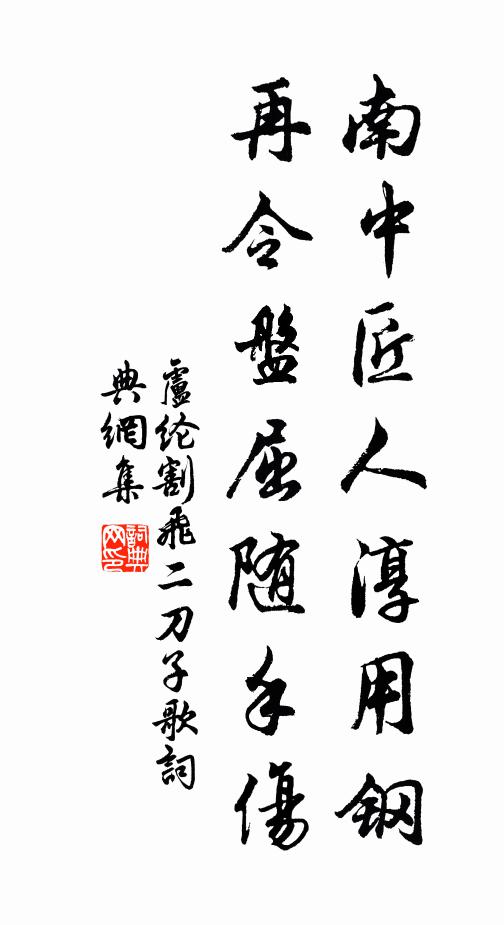 南中匠人淳用钢
再令盤屈随手傷
盧纶割飛二刀子歌詞
典網集
詞典网印